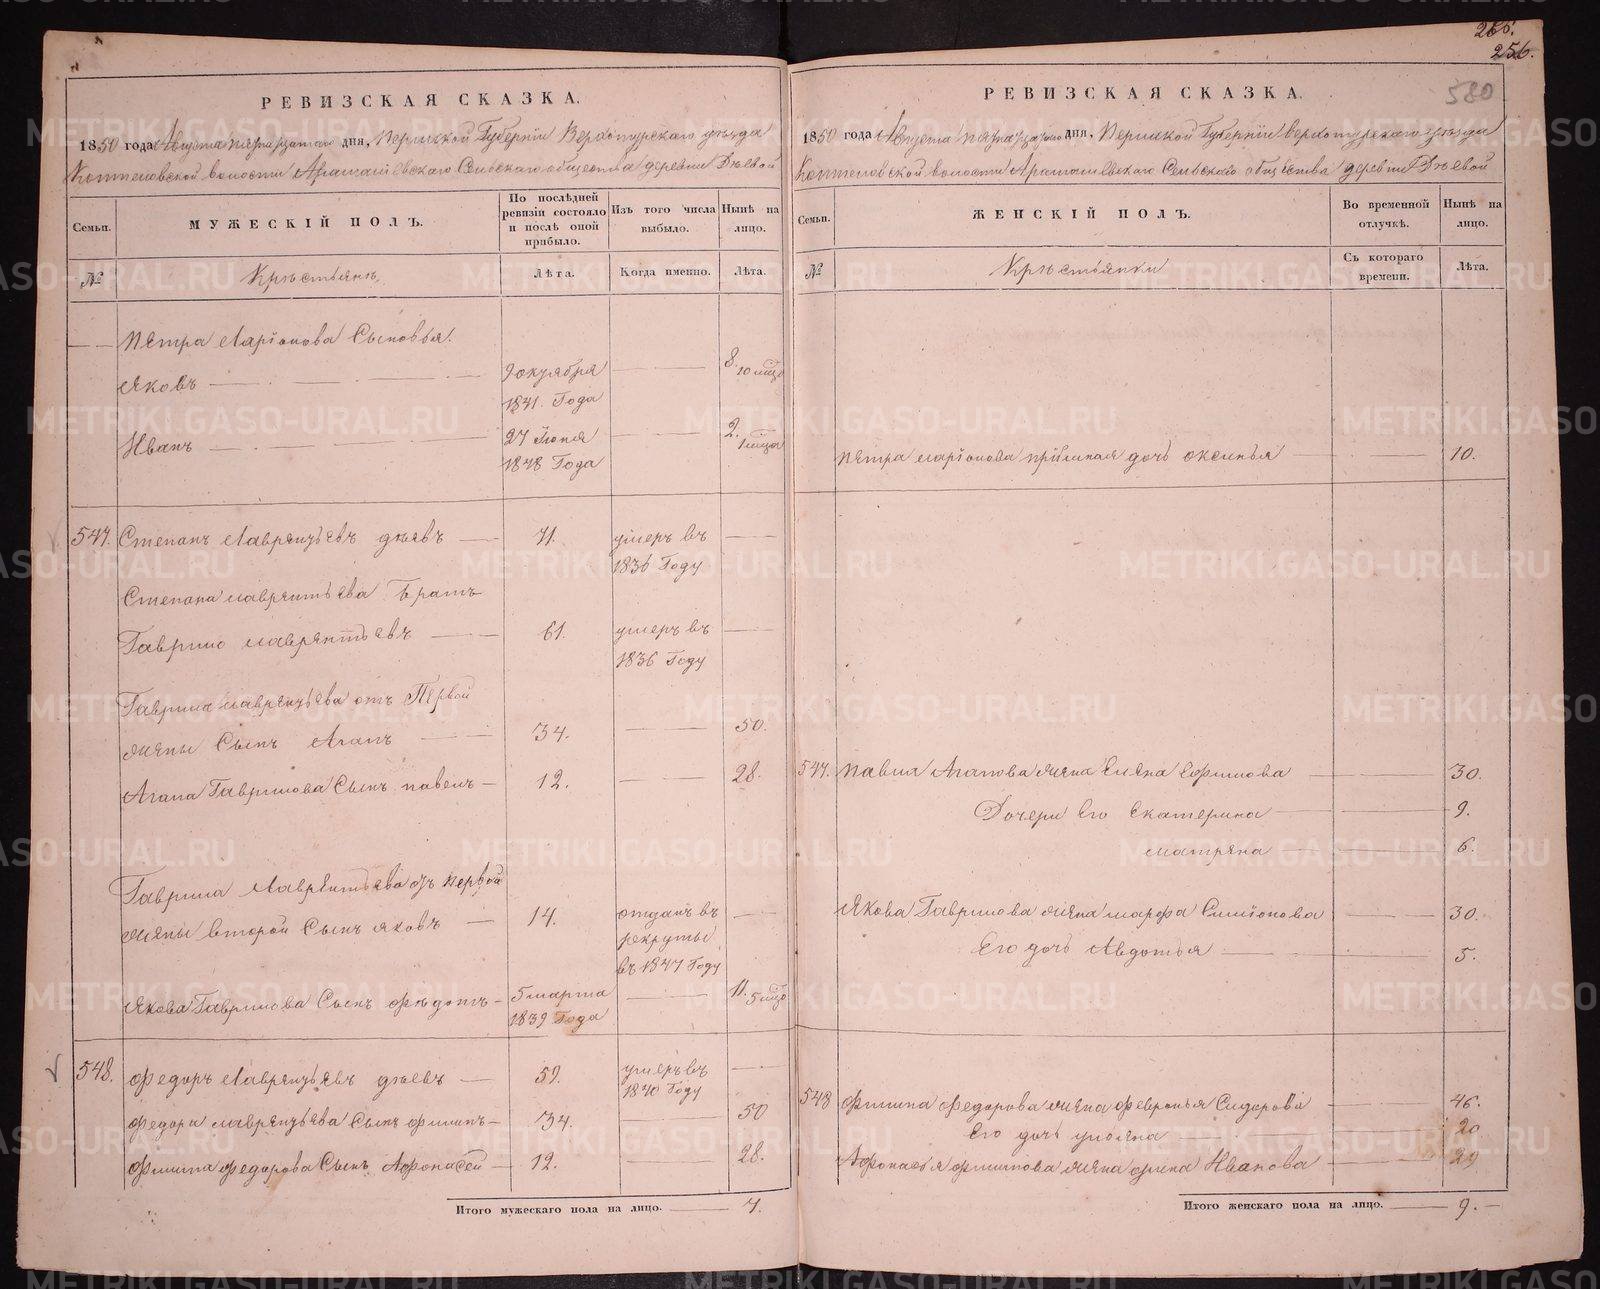 266.
256.
580
РЕВИЗСКАЯ СКАЗКА.
1850 года Августа пятнадцатаго дня, Пермской Губерніи Верхотурскаго уѣзда
Коптеловской волости Арамашевскаго Сельскаго общества деревни Дѣевой
Семьи.
МУЖЕСКІЙ ПОЛЪ.
По послѣдней ревизіи состояло и послѣ оной прибыло.
Изъ того числа выбыло.
Нынѣ на лицо.
№
Крѣстьянъ
Лѣта.
Когда именно.
Лѣта.
Петра Ларіонова Сыновья.
Яковъ 9 октября 1841. Года 8. 10 мцъ
Иванъ 27 Іюня 1848 Года 2. 1 мца
547. Степанъ Лаврентьевъ дѣевъ 71. умеръ въ 1836 Году
Степана лаврентьева Братъ
Гаврило лаврентьевъ 61. умеръ въ 1836 Году
Гаврила лаврентьева отъ Первой
жены Сынъ Агапъ 34. 50.
Агапа Гаврилова Сынъ павелъ 12. 28.
Гаврила Лаврентьева отъ первой
жены второй Сынъ яковъ 14. отданъ въ рекруты въ 1847 Году
Якова Гаврилова Сынъ Федотъ 5 марта 1839 Года 11. 5 мцъ
548. Федоръ Лаврентьевъ дѣевъ 59. умеръ въ 1840 Году
Федора лаврентьева Сынъ филипъ 34. 50
Филипа федорова Сынъ Афонасей 12. 28.
Итого мужескаго пола на лицо. 7.
РЕВИЗСКАЯ СКАЗКА.
1850 года Августа пятнадцатаго дня, Пермской Губерніи верхотурскаго уѣзда
Коптеловской волости Арамашевскаго Сельскаго общества деревни Дѣевой
Семьи.
ЖЕНСКІЙ ПОЛЪ.
Во временной отлучкѣ.
Нынѣ на лицо.
№
Крѣстьянки
Съ котораго времени.
Лѣта.
Петра Ларіонова дочь оксинья 10.
547. Павла Агапова жена Елена Ефимова 30.
Дочери Его Екатерина 9.
матрена 6.
Якова Гаврилова жена марфа Симіонова 30.
Его дочь Авдотья 5.
548 Филипа Федорова жена февронья Сидорова 46.
Его дочь ульяна 20
Афонасья филипова жена орина Иванова 29
Итого женскаго пола на лицо. 9.
METRIKI.GASO-URAL.RU